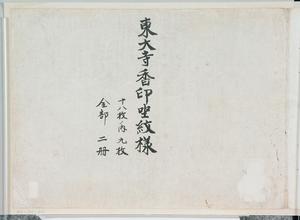 東大寺香印坐紋様
十八枚ノ内九枚
全部 二册